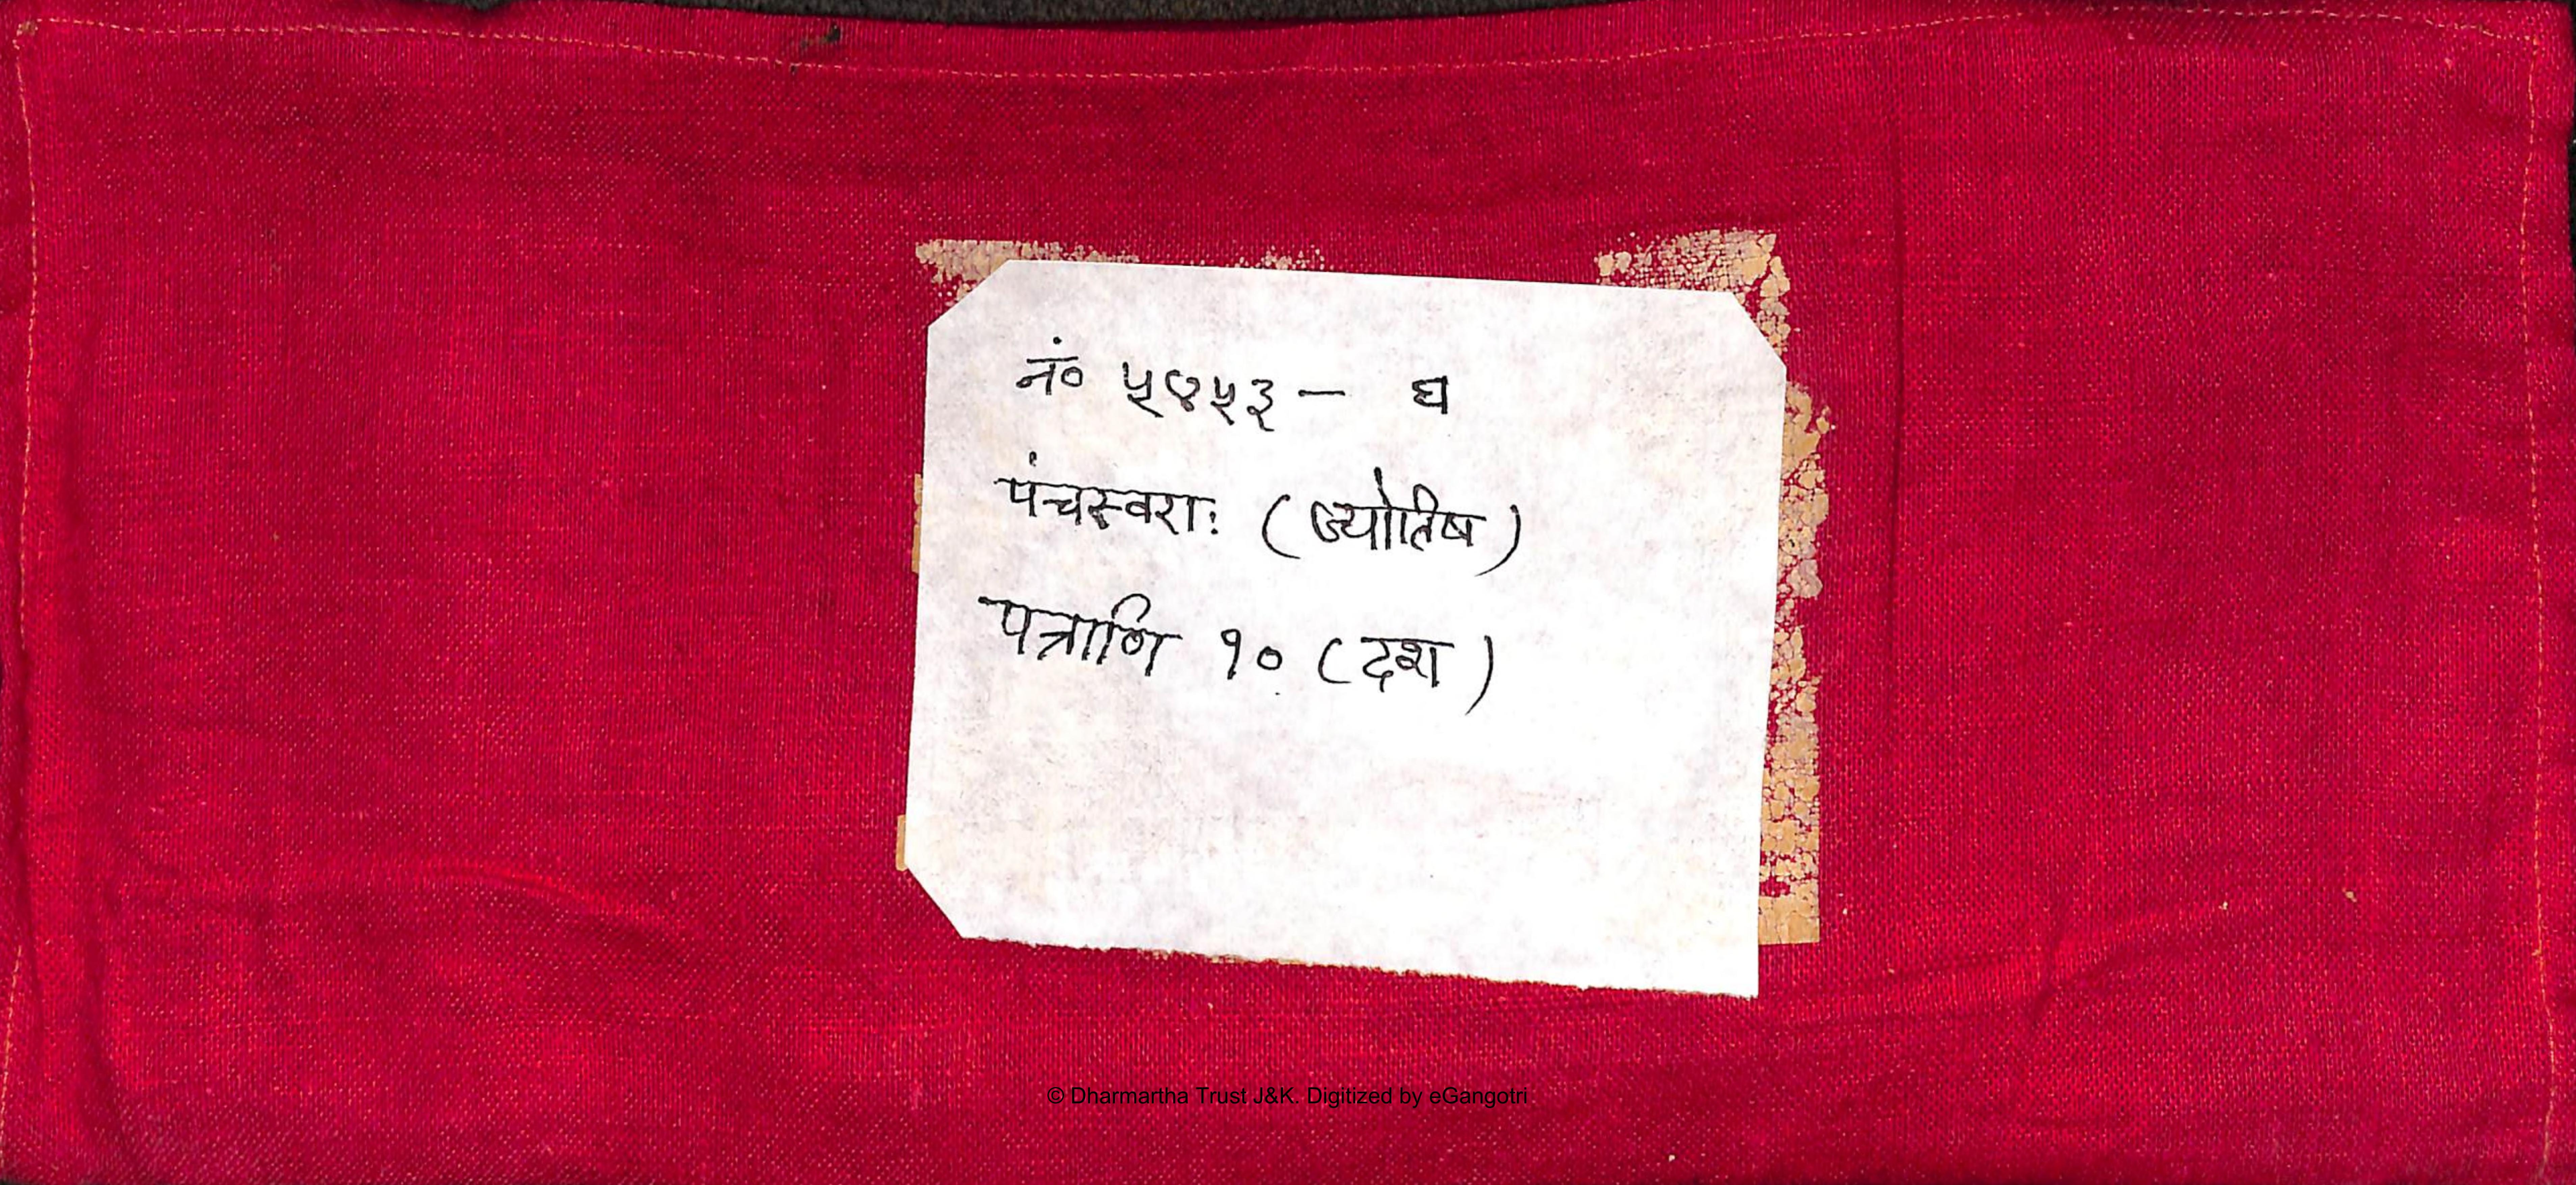 नं० ५४५३ — घ
पंचस्वराः (ज्योतिष)
पत्राणि १० (दश)
© Dharmartha Trust J&K. Digitized by eGangotri